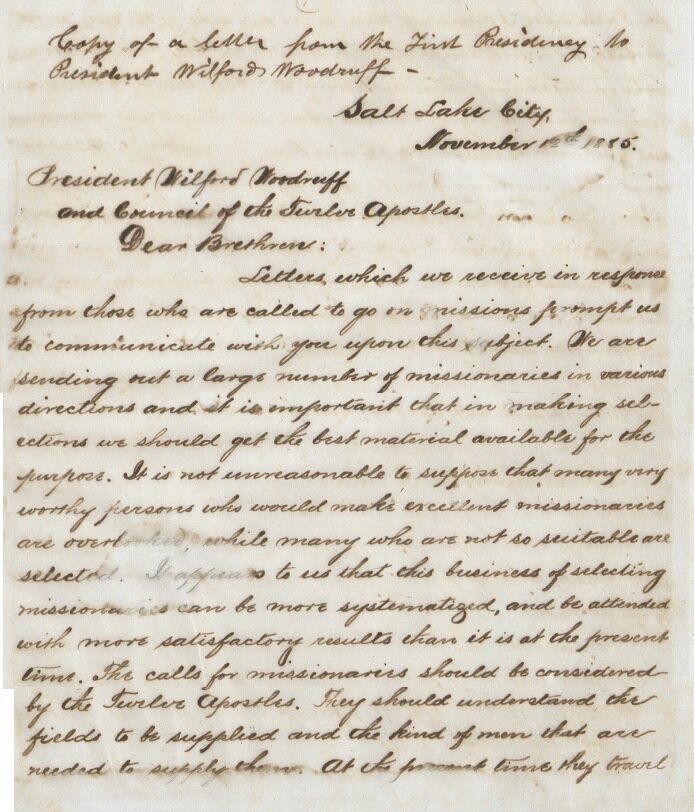 Copy of a letter from the First Presidency to
President Wilford Woodruff -
Salt Lake City,
November 12th 1885.
President Wilford Woodruff
and Council of the Twelve Apostles.
Dear Brethren:
Letters which we receive in response
from those who are called to go on missions prompt us
to communicate with you upon this subject. We are
sending out a large number of missionaries in various
directions and it is important that in making sel-
ections we should get the best material available for the
purpose. It is not unreasonable to suppose that many very
worthy persons who would make excellent missionaries
are overlooked, while many who are not so suitable are
selected. It appears to us that this business of selecting
missionaries can be more systematized, and be attended
with more satisfactory results than it is at the present
time. The calls for missionaries should be considered
by the Twelve Apostles. They should understand the
fields to be supplied and the kind of men that are
needed to supply them. At the present time they travel